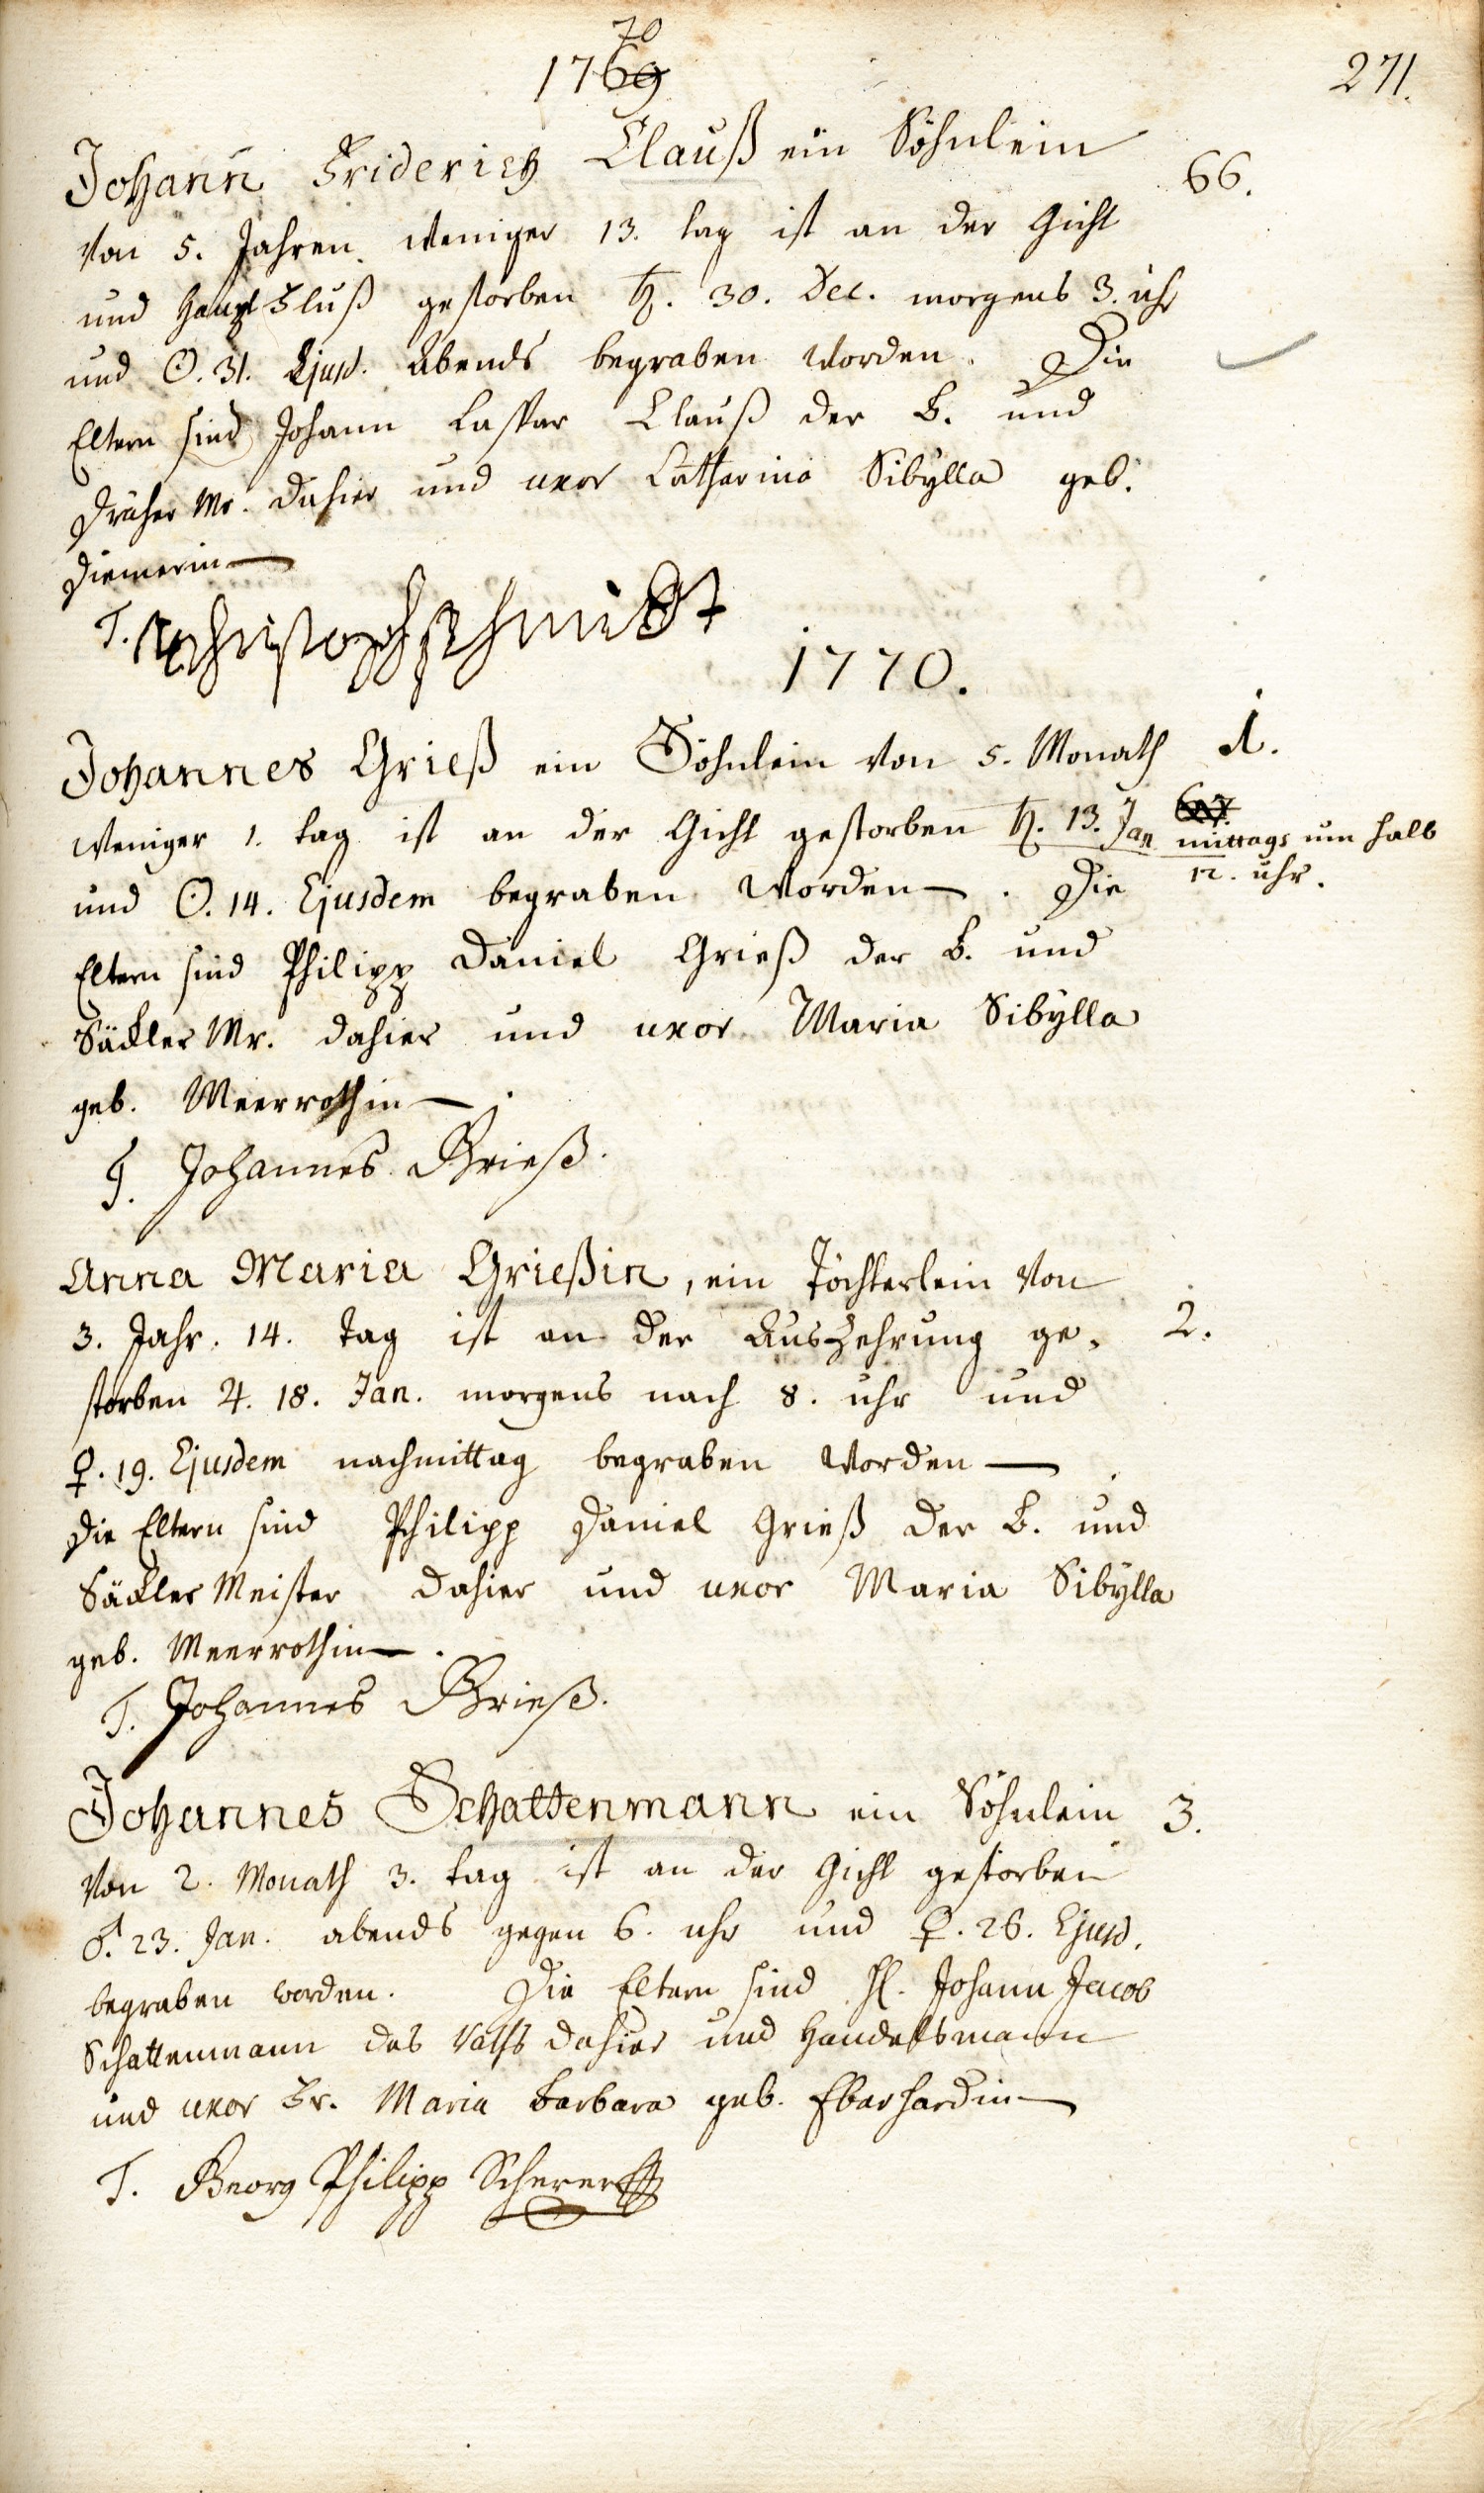 70
1769
271.
Johann Friderich Clauß ein Söhnlein
66.
Von 5. Jahren weniger 13. tag ist an der Gicht
und Haupt Fluß gestorben ♄. 30. Dec. morgens 3. uhr
und ☉. 31. Ejusd. Abends begraben Worden. Die
Eltern sind Johann Caspar Clauß der B. und
Dräher Mr. dahier und uxor Catharina Sibÿlla geb.
Diemerin
T. Christoph Schmidt
1770.
Johannes Grieß ein Söhnlein von 5. Monath
1.
weniger 1. tag ist an der Gicht gestorben ♄. 13. Jan
mittags um halb
12. uhr.
und ☉. 14. Ejusdem begraben Worden. Die
Eltern sind Philipp Daniel Grieß der B. und
Säckler Mr. dahier und uxor Maria Sibÿlla
geb. Meerrothin.
T. Johannes Grieß.
Anna Maria Grießin, ein Töchterlein Von
3. Jahr. 14. Tag ist an der Auszehrung ge-
2.
storben ♃. 18. Jan. morgens nach 8. uhr und
♀. 19. Ejusdem nachmittag begraben Worden.
Die Eltern sind Philipp Daniel Grieß der B. und
Säckler Meister dahier und uxor Maria Sibÿlla
geb. Meerrothin.
T. Johannes Grieß.
Johannes Schattenmann ein Söhnlein
3.
Von 2. Monath 3. tag ist an der Gicht gestorben
♂. 23. Jan. abends gegen 6. uhr und ♀. 26. Ejusd.
begraben worden. Die Eltern sind H. Johann Jacob
Schattenmann des Raths dahier und Handelsmann
und uxor Fr. Maria Barbara geb. Eberhardin
T. Georg Philipp Scherer